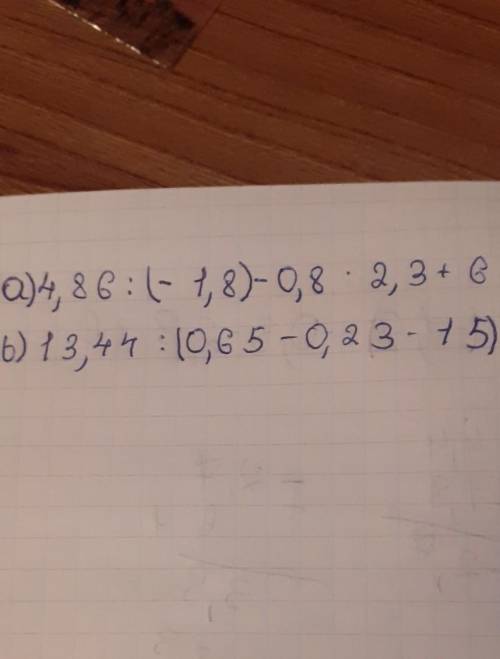 a) 4,86 : (- 1,8) - 0,8 · 2,3 + 6
b) 13,44 : (0,65 - 0,23 - 15)